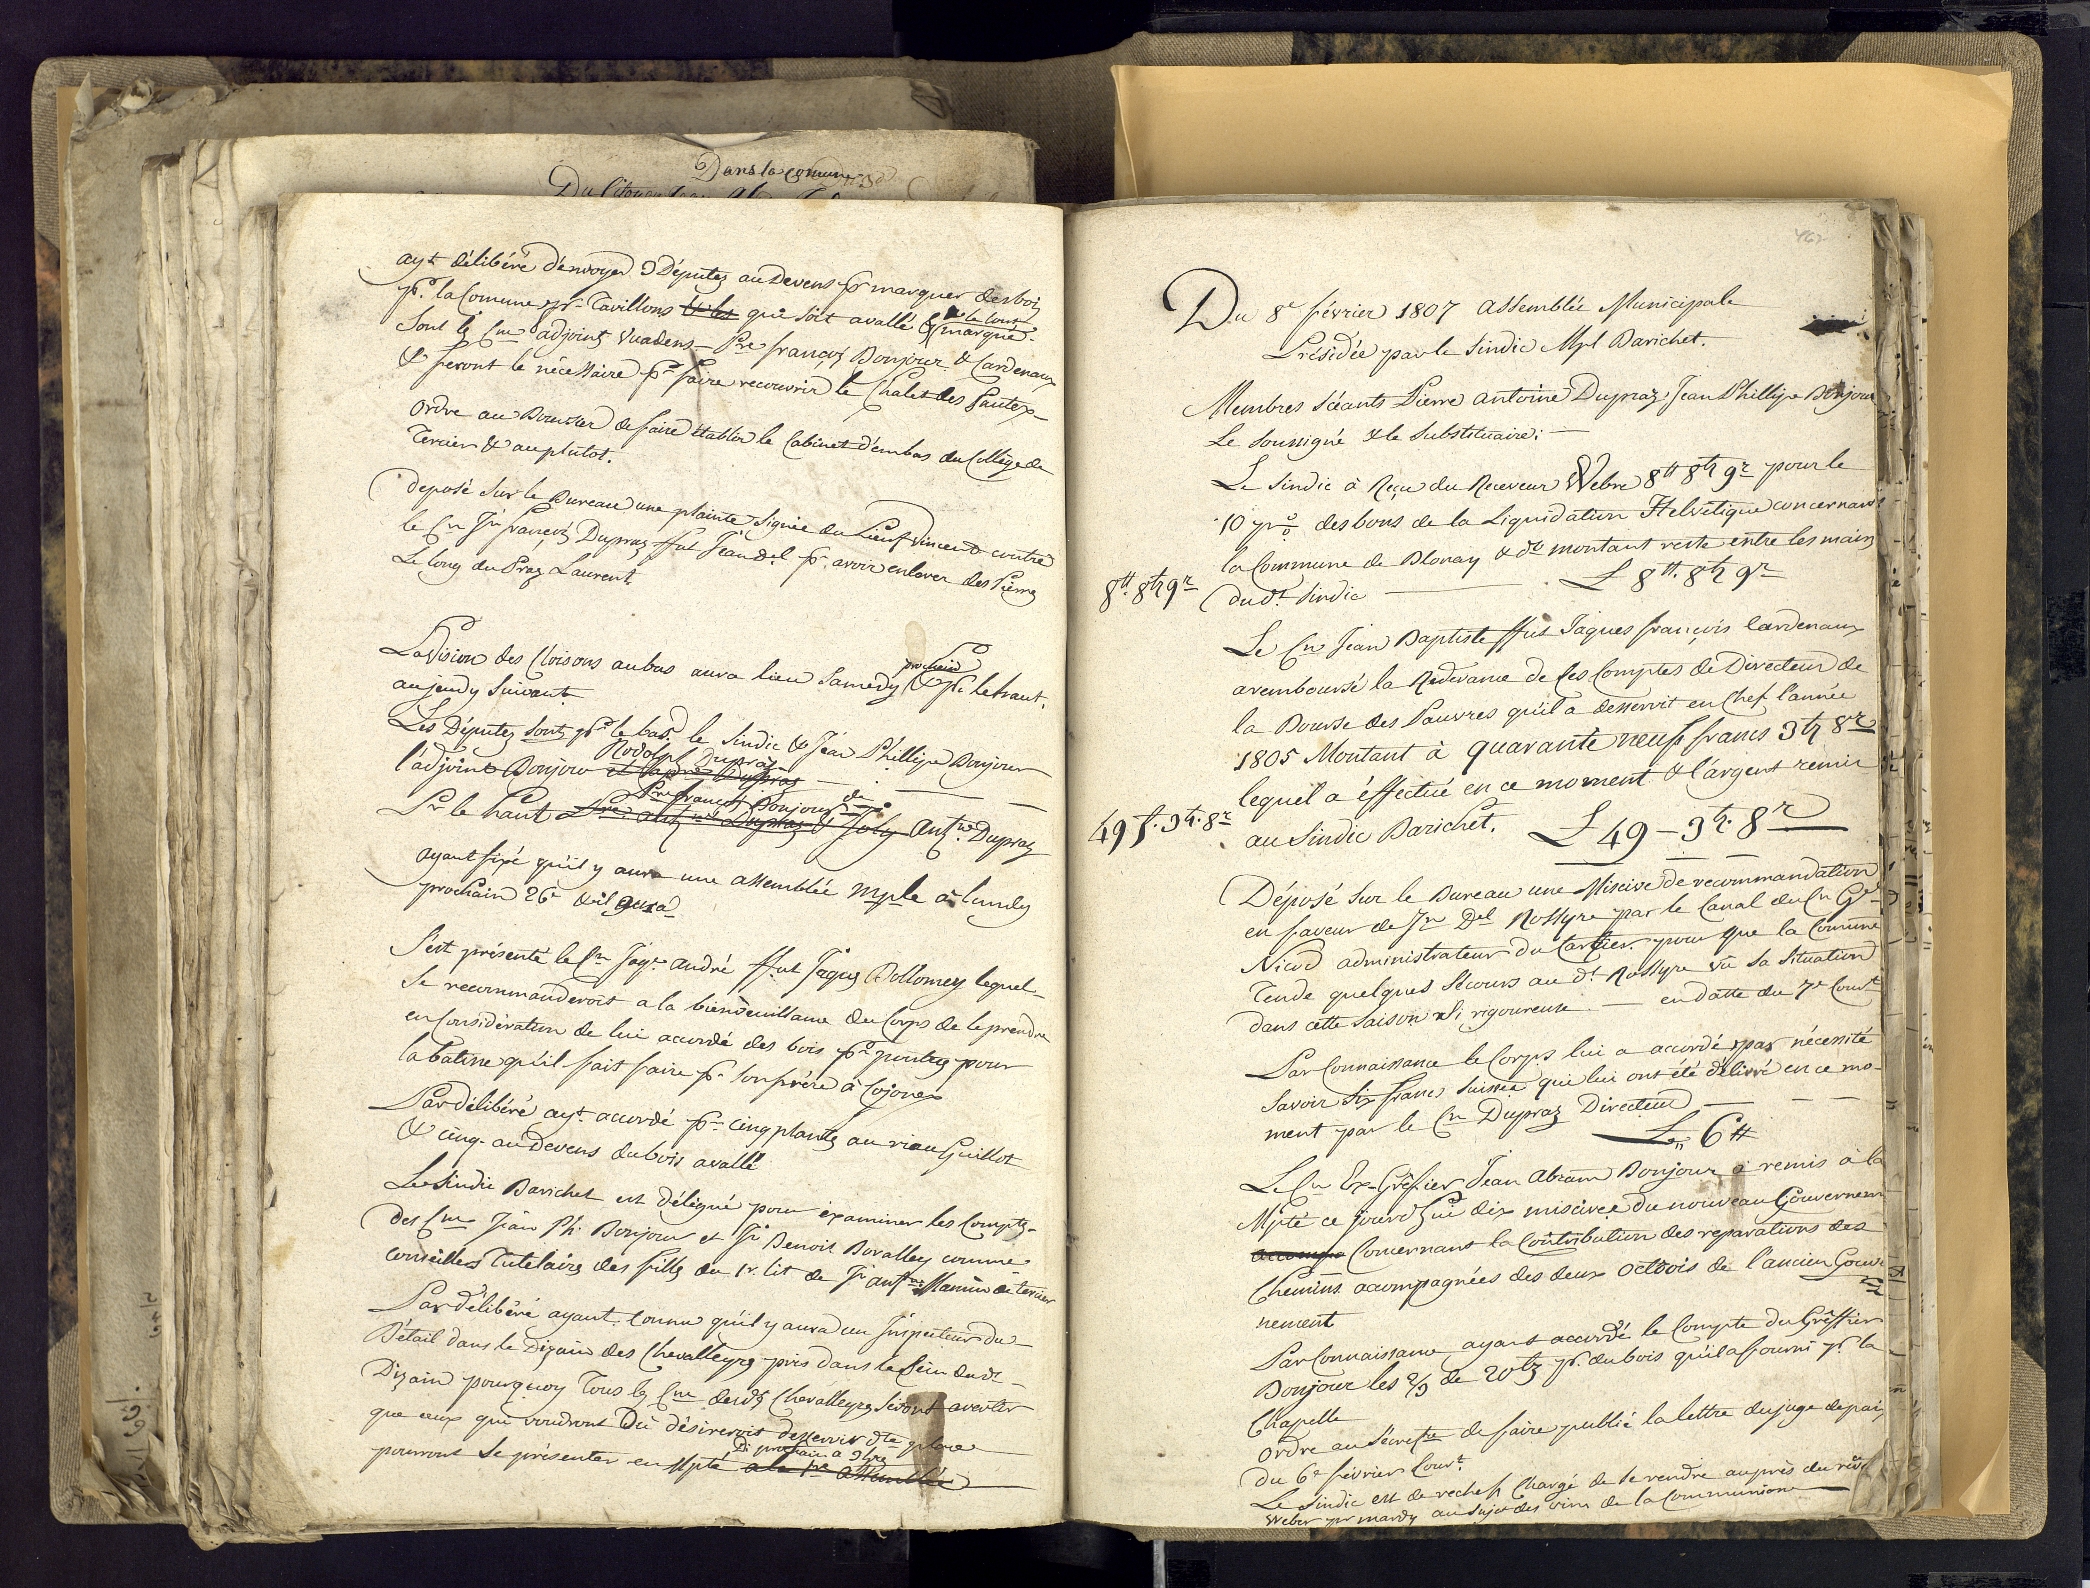 Dans la comune
ayt délibéré d'envoyer 3 Députez au Devens pr marquer des bois
pr. la Comune & pr Tavillons qui soit avallé & le tout marqué.
Sont les Cns adjoints Vuadens, Pre françois Bonjour & Cardenaux
& feront le nécessaire pr faire recouvrir le Chalet des Pautex
ordre au Boursier de faire établir le Cabinet d'embas du Collège de
Tercier & au plutot.
deposé sur le Bureau une plainte signée du Lieut Vincent contre
le Cn Jn françois Dupraz ffut Jean Del pr. avoir enlever des Pierres
Le long du Praz Laurent.
La Vision des Cloisons au bas aura lieu Samedy prochain & pr. le haut.
au jeudy suivant.
Les Députez sont pr le bas. le Sindic & Jean Phillipe Bonjour
Rodolph Dupraz
l'adjoint Bonjour et
Pre françois Bonjour
Pr le haut Pre Ante Dupraz & Joly Antne Dupraz
ayant fixé qu'il y aura une assemblée mple à lundy
prochain 26e
S'est présenté le Cn Jaqe André ffut Jaques Bottomey lequel
se recommanderoit a la bienveuillance du Corps de le prendre
en Considération de lui accordé des bois pr pour
la batisse qu'il fait faire pr son frère à Cojonex
Par délibéré ayt accordé pr cinq plantes au riau Guillot
& cinq au Devens du bois avallé
Le Sindic Barichet est délégué pour examiner les Comptes
des Cns Jean Ph. Bonjour et Jn Benoit Bovalley comme
conseillers Tutelaires des filles du 1r. lit de Jn antne Mamin de tercier
Par délibéré ayant connu qu'il y aura un Inspecteur du
Bétail dans le Dizain des Chevalleyres pris dans le Sein dudt
Dizain pourquoy Tous les Cns desds Chevalleyres seront avertis
que ceux qui voudront ou désireroit desservir dte place
Di prochain a 3 hres
pourront se présenter en Mpté a la 1re assemblée
Du 8e février 1807 Assemblée Municipale
Présidée par le Sindic Mpl Barichet.
Membres Séants Pierre Antoine Dupraz, Jean Phillipe Bonjour
Le soussigné & le Substituaire:
Le Sindic à Reçu du Receveur Webre 8tt 8tz 9r pour le
10 pr % des bons de la Liquidation Helvétique concernant
la Commune de Blonay & dt montant reste entre les mains
8tt. 8tz 9r du dt. Sindic L 8tt. 8tz 9r
Le Cn Jean Baptiste ffut Jaques françois Cardenaux
a remboursé la Redevance de ses Comptes de Directeur de
la Bourse des Pauvres qu'il a desservit en Chef l'année
1805 Montant à quarante neuf francs 3tz 8r
lequel a éffectué en ce moment & l'argent remis
49f. 3tz. 8r au Sindic Barichet. L 49 – 3tz. 8r
Déposé sur le Bureau une Miscive de recommandation
en faveur de Jn Del Rossyre par le Canal du Cn Gl
Nicod administrateur du Cartier, pour que la Comune
Tende quelques Sécours au dt Rossyre vu sa Situation
dans cette saison si rigoureuse. en datte du 7e Court
Par Connaissance le Corps lui a accordé par nécessité
Savoir Six francs Suisses qui lui ont été délivré en ce mo-
ment par le Cn Dupraz Directeur
L 6 tt
Le Cn Ex-Gréfier Jean Abram Bonjour a remis à la
Mpté ce jourd'hui dix miscives du nouveau Gouvernem
Concernant la Contribution des reparations des
Chemins accompagnées des deux octrois de l'ancien Gouver
nement
Par Connaissance ayant accordé le Compte du Gréffier
Bonjour les 2/3 de 20tz pr. du bois qu'il a fourni pr. la
Chapelle
ordre au Sécretre de faire publié la lettre du juge de paix
du 6e février Court.
Le Sindic est de rechef Chargé de se rendre auprès du
Weber pr mardy au sujet des vins de la Communion